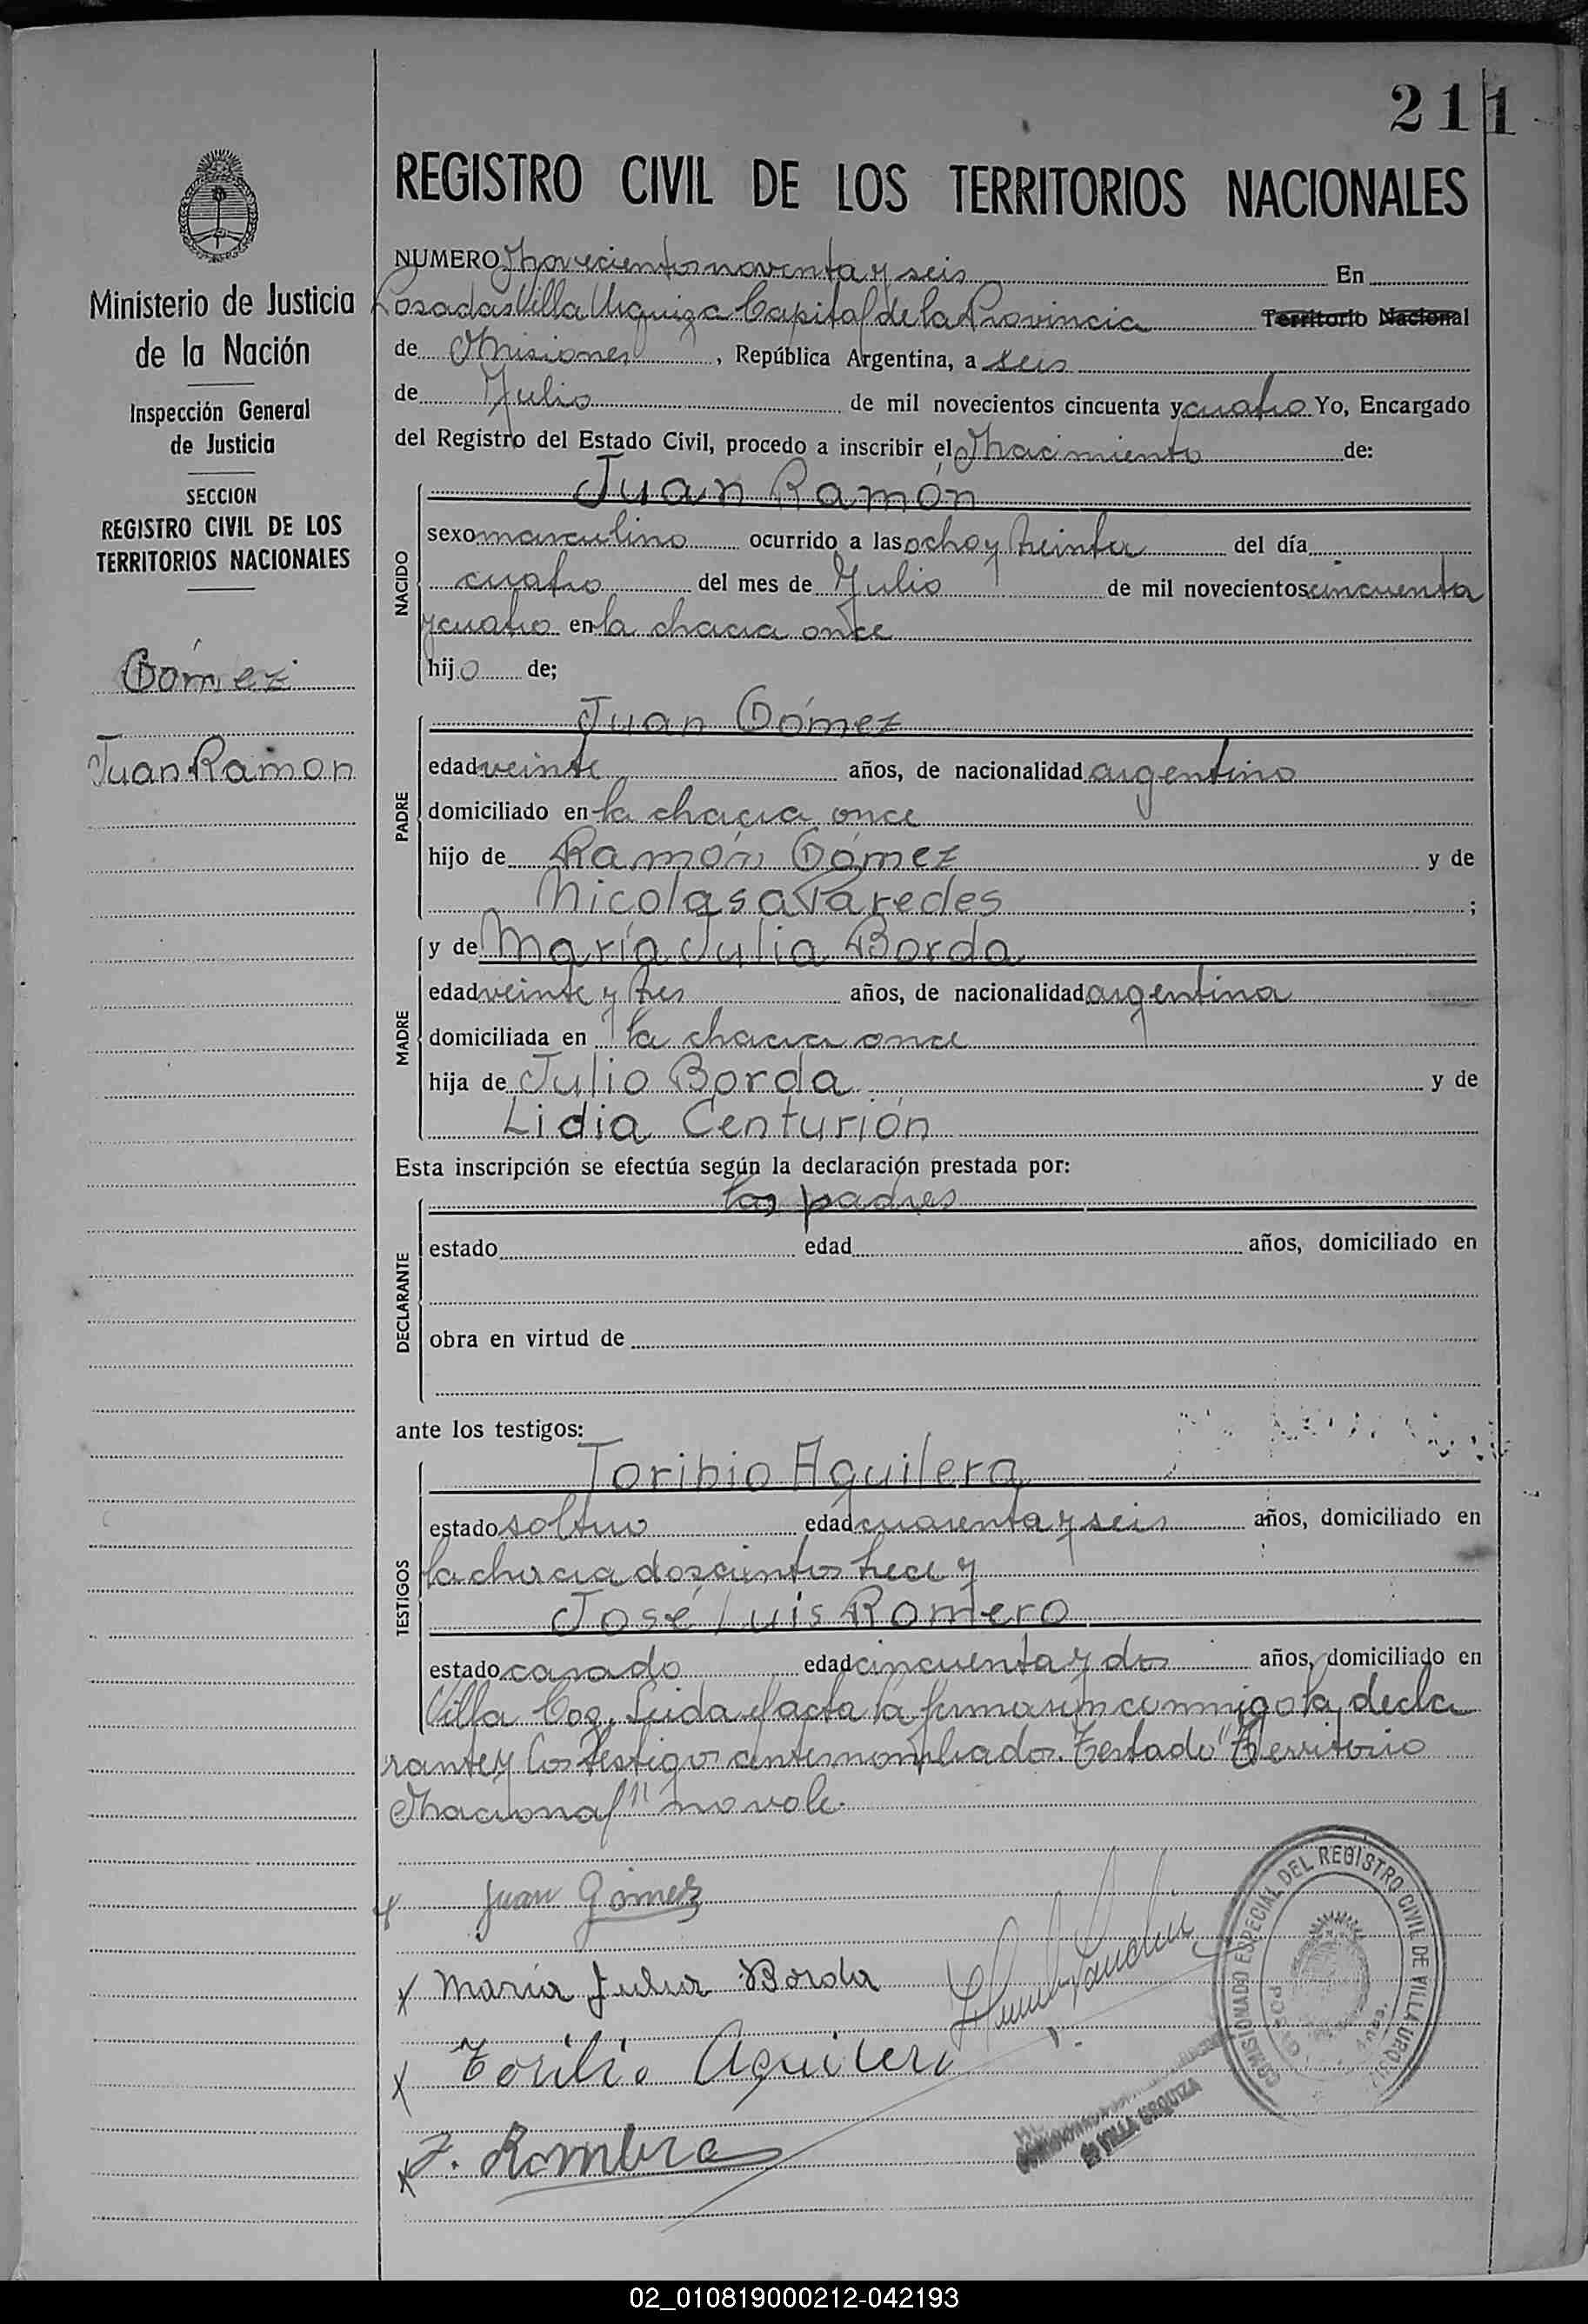 211
REGISTRO CIVIL DE LOS TERRITORIOS NACIONALES
Ministerio de Justicia
de la Nación
Inspección General
de Justicia
SECCION
REGISTRO CIVIL DE LOS
TERRITORIOS NACIONALES
Gómez
Juan Ramon
NUMERO Novecientos noventa y seis En
Posadas Villa Urquiza Capital de la Provincia Territorio Nacional
de Misiones, República Argentina, a seis
de Julio de mil novecientos cincuenta y cuatro Yo, Encargado
del Registro del Estado Civil, procedo a inscribir el Nacimiento de:
NACIDO
Juan Ramón
sexo masculino ocurrido a las ocho y treinta del día
cuatro del mes de Julio de mil novecientos cincuenta
y cuatro en la chacra once
hijo de;
PADRE
Juan Gómez
edad veinte años, de nacionalidad argentino
domiciliado en la chacra once
hijo de Ramón Gómez y de
Nicolasa Paredes ;
MADRE
y de María Julia Borda
edad veinte y tres años, de nacionalidad argentina
domiciliada en la chacra once
hija de Julio Borda y de
Lidia Centurión
Esta inscripción se efectúa según la declaración prestada por:
DECLARANTE
los padres
estado edad años, domiciliado en
obra en virtud de
ante los testigos:
TESTIGOS
Toribio Aguilera
estado soltero edad cuarenta y seis años, domiciliado en
la chacra doscientos trece y
José Luis Romero
estado casado edad cincuenta y dos años, domiciliado en
Villa Leida el acta la firmaron conmigo la decla
rante y los testigos antes nombrados. Testado "Territorio
Nacional" no vale.
Juan Gómez
x Maria Julia Borda
x Toribio Aguilera
x J.
COMISIONADO ESPECIAL DEL REGISTRO CIVIL DE VILLA URQUIZA
de VILLA URQUIZA
02_010819000212-042193